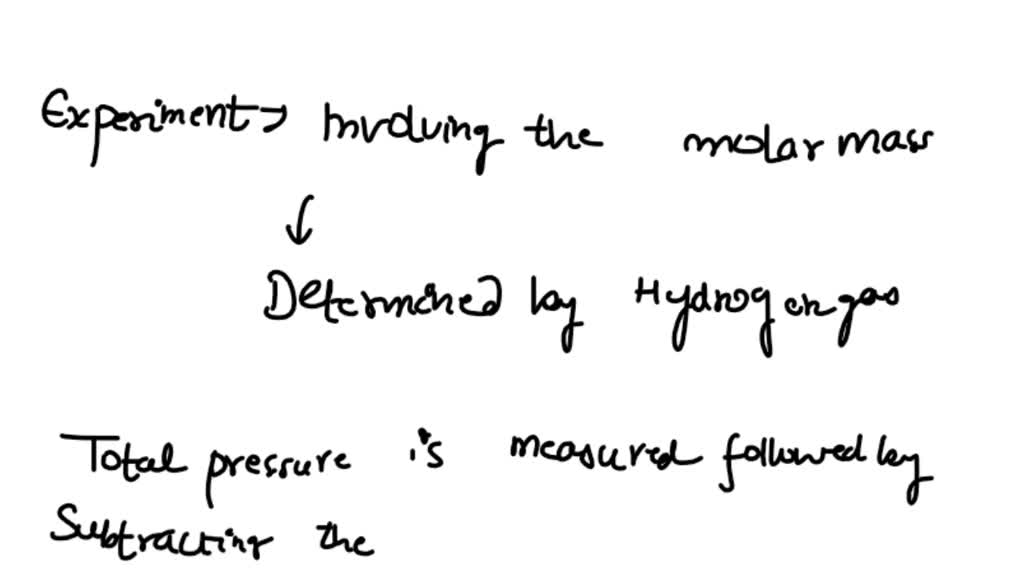 Experiment → Involving the molar mass
↓
Determined by Hydrogen gas
Total pressure is measured followed by
Subtracting the